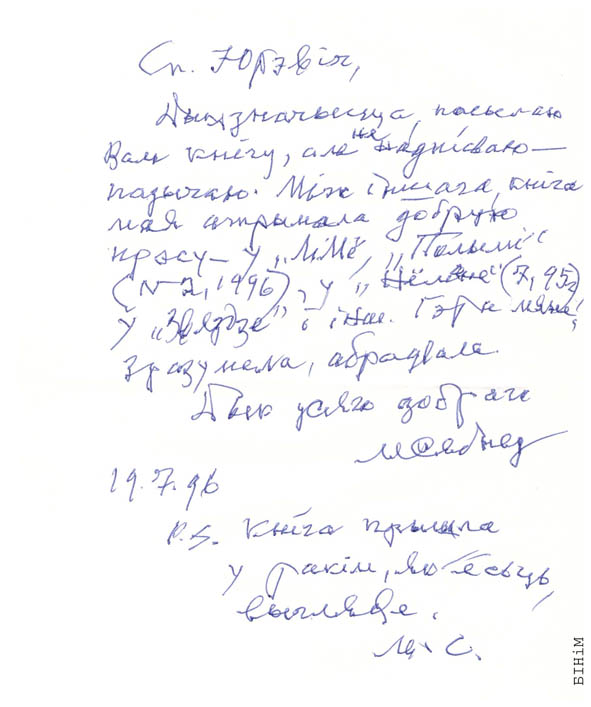 Сп. Юрэвіч,
пасылаю
Вам кнігу, але не надпісваю —
пазычаю. Між іншага, кніга
мая атрымала добрую
прэсу — у „ЛіМе", „Полымі"
(№ 2, 1996), у (7, 95),
у „Звяздзе" і інш. Гэта мяне,
зразумела, абрадвала.
Дык усяго добрага
19.7.96
P.S. Кніга прыйшла
у такім, як ёсьць,
выглядзе.
М. С.
БІНіМ